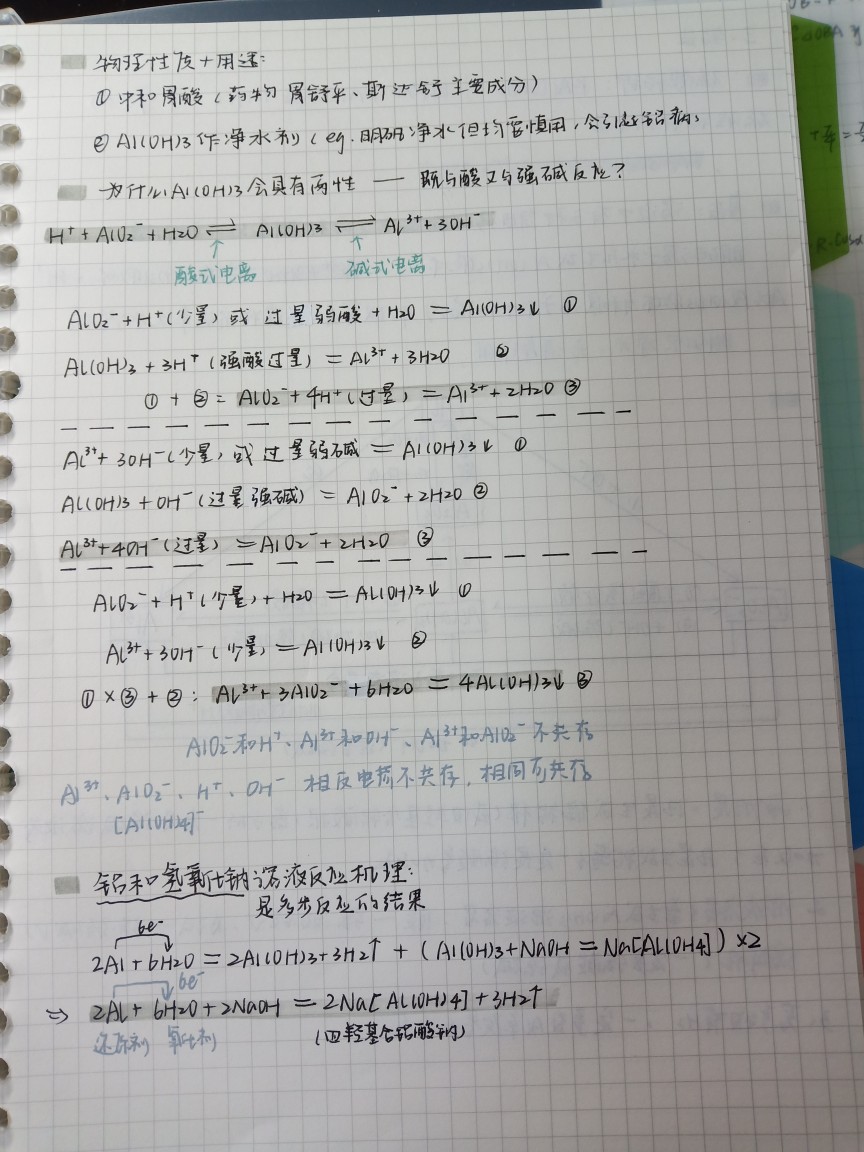 物理性质+用途:
① 中和胃酸 (药物 胃舒平、斯达舒主要成分)
② Al(OH)3 作净水剂 (eg. 明矾净水但均需慎用, 会引起铝病)
为什么 Al(OH)3 会具有两性 —— 既与酸又与强碱反应?
H⁺ + AlO2⁻ + H2O ⇌ Al(OH)3 ⇌ Al³⁺ + 3OH⁻
↑ ↑
酸式电离 碱式电离
AlO2⁻ + H⁺(少量) 或 过量弱酸 + H2O = Al(OH)3↓ ①
Al(OH)3 + 3H⁺ (强酸过量) = Al³⁺ + 3H2O ②
① + ② = AlO2⁻ + 4H⁺(过量) = Al³⁺ + 2H2O ③
Al³⁺ + 3OH⁻(少量) 或 过量弱碱 = Al(OH)3↓ ①
Al(OH)3 + OH⁻(过量强碱) = AlO2⁻ + 2H2O ②
Al³⁺ + 4OH⁻(过量) = AlO2⁻ + 2H2O ③
AlO2⁻ + H⁺(少量) + H2O = Al(OH)3↓ ①
Al³⁺ + 3OH⁻(少量) = Al(OH)3↓ ②
① × ③ + ② : Al³⁺ + 3AlO2⁻ + 6H2O = 4Al(OH)3↓ ③
AlO2⁻和H⁺、Al³⁺和OH⁻、Al³⁺和AlO2⁻ 不共存
Al³⁺、AlO2⁻、H⁺、OH⁻ 相反电荷不共存, 相同可共存
[Al(OH)4]⁻
铝和氢氧化钠溶液反应机理:
是多步反应的结果
6e⁻
2Al + 6H2O = 2Al(OH)3 + 3H2↑ + (Al(OH)3 + NaOH = Na[Al(OH4]) ×2
6e⁻
⇒ 2Al + 6H2O + 2NaOH = 2Na[Al(OH)4] + 3H2↑
还原剂 氧化剂 (四羟基合铝酸钠)